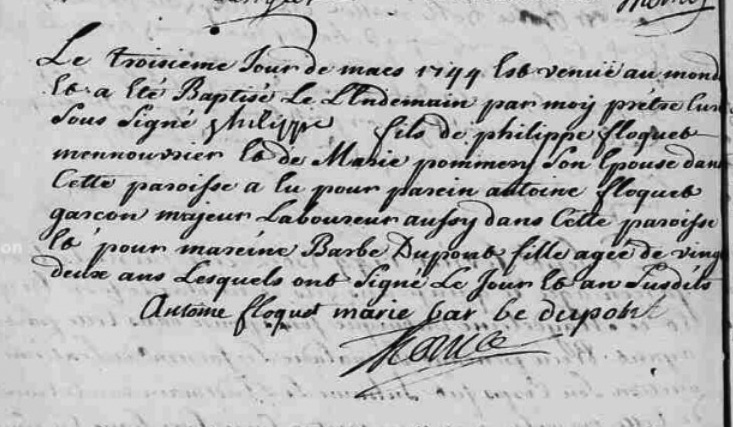 Le troisième Jour de mars 1744 Est venüe au mond
Et a Eté Baptisé Le LEndemain par moy prétre Cur
Sous Signé philippe fils de philippe floquet
mennouvrier Et de Marie pommery Son Epouse dans
Cette paroisse a Eu pour parein antoine floquet
garcon majeur Laboureur aussy dans Cette paroisse
Et pour mareine Barbe Dupont fille agée de ving
deux ans Lesquels ont Signé Le Jour Et an Susdits
Antoine floquet marie bar be dupont